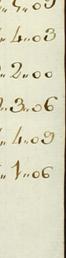 4〃03
2〃00
3〃06
4〃09
1〃06